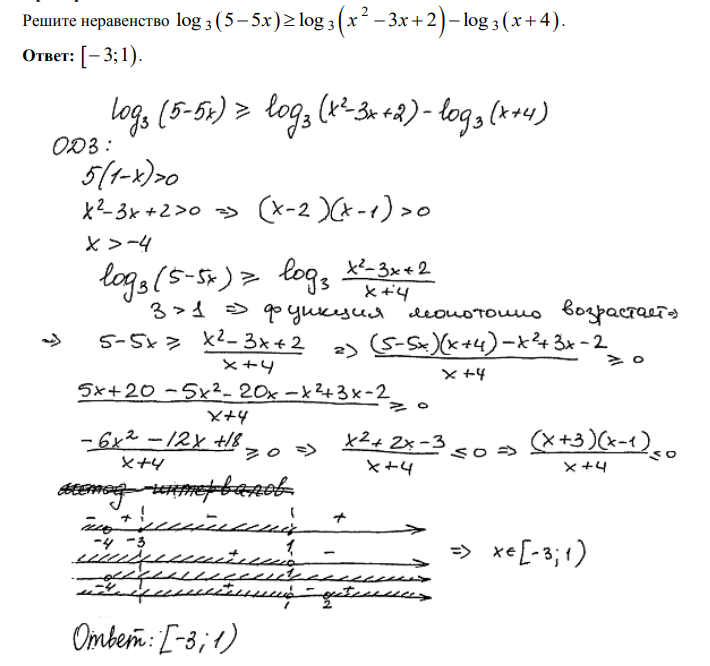 Решите неравенство log₃(5−5x)≥log₃(x²−3x+2)−log₃(x+4).
Ответ: [−3;1).
log₃(5-5x) ≥ log₃(x²-3x+2) - log₃(x+4)
ОДЗ:
5(1-x)>0
x²-3x+2>0 ⇒ (x-2)(x-1)>0
x>-4
log₃(5-5x) ≥ log₃ (x²-3x+2)/(x+4)
3>1 ⇒ функция монотонно возрастает ⇒
⇒ 5-5x ≥ (x²-3x+2)/(x+4) ⇒ ((5-5x)(x+4)-x²+3x-2)/(x+4) ≥ 0
(5x+20-5x²-20x-x²+3x-2)/(x+4) ≥ 0
(-6x²-12x+18)/(x+4) ≥ 0 ⇒ (x²+2x-3)/(x+4) ≤ 0 ⇒ ((x+3)(x-1))/(x+4) ≤ 0
метод интервалов
- + - +
-4 -3 1
+ -
1 ⇒ x∈[-3;1)
-4
+ - +
1 2
Ответ: [-3;1)